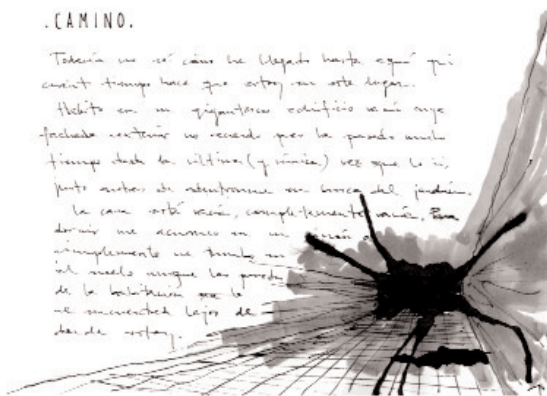 .CAMINO.
Todavía no sé cómo he llegado hasta aquí ni
tiempo hace que estoy en este lugar.
Habito en un gigantesco edificio cuya
fachada exterior no recuerdo pues ha pasado mucho
tiempo desde la última (y única) vez que la vi,
justo antes de adentrarme en busca del jardín.
La casa está vacía, completamente vacía. Para
dormir me acurruco en un rincón o
simplemente me tumbo en
el suelo aunque las paredes
de la habitación
se encuentren lejos de
donde estoy.